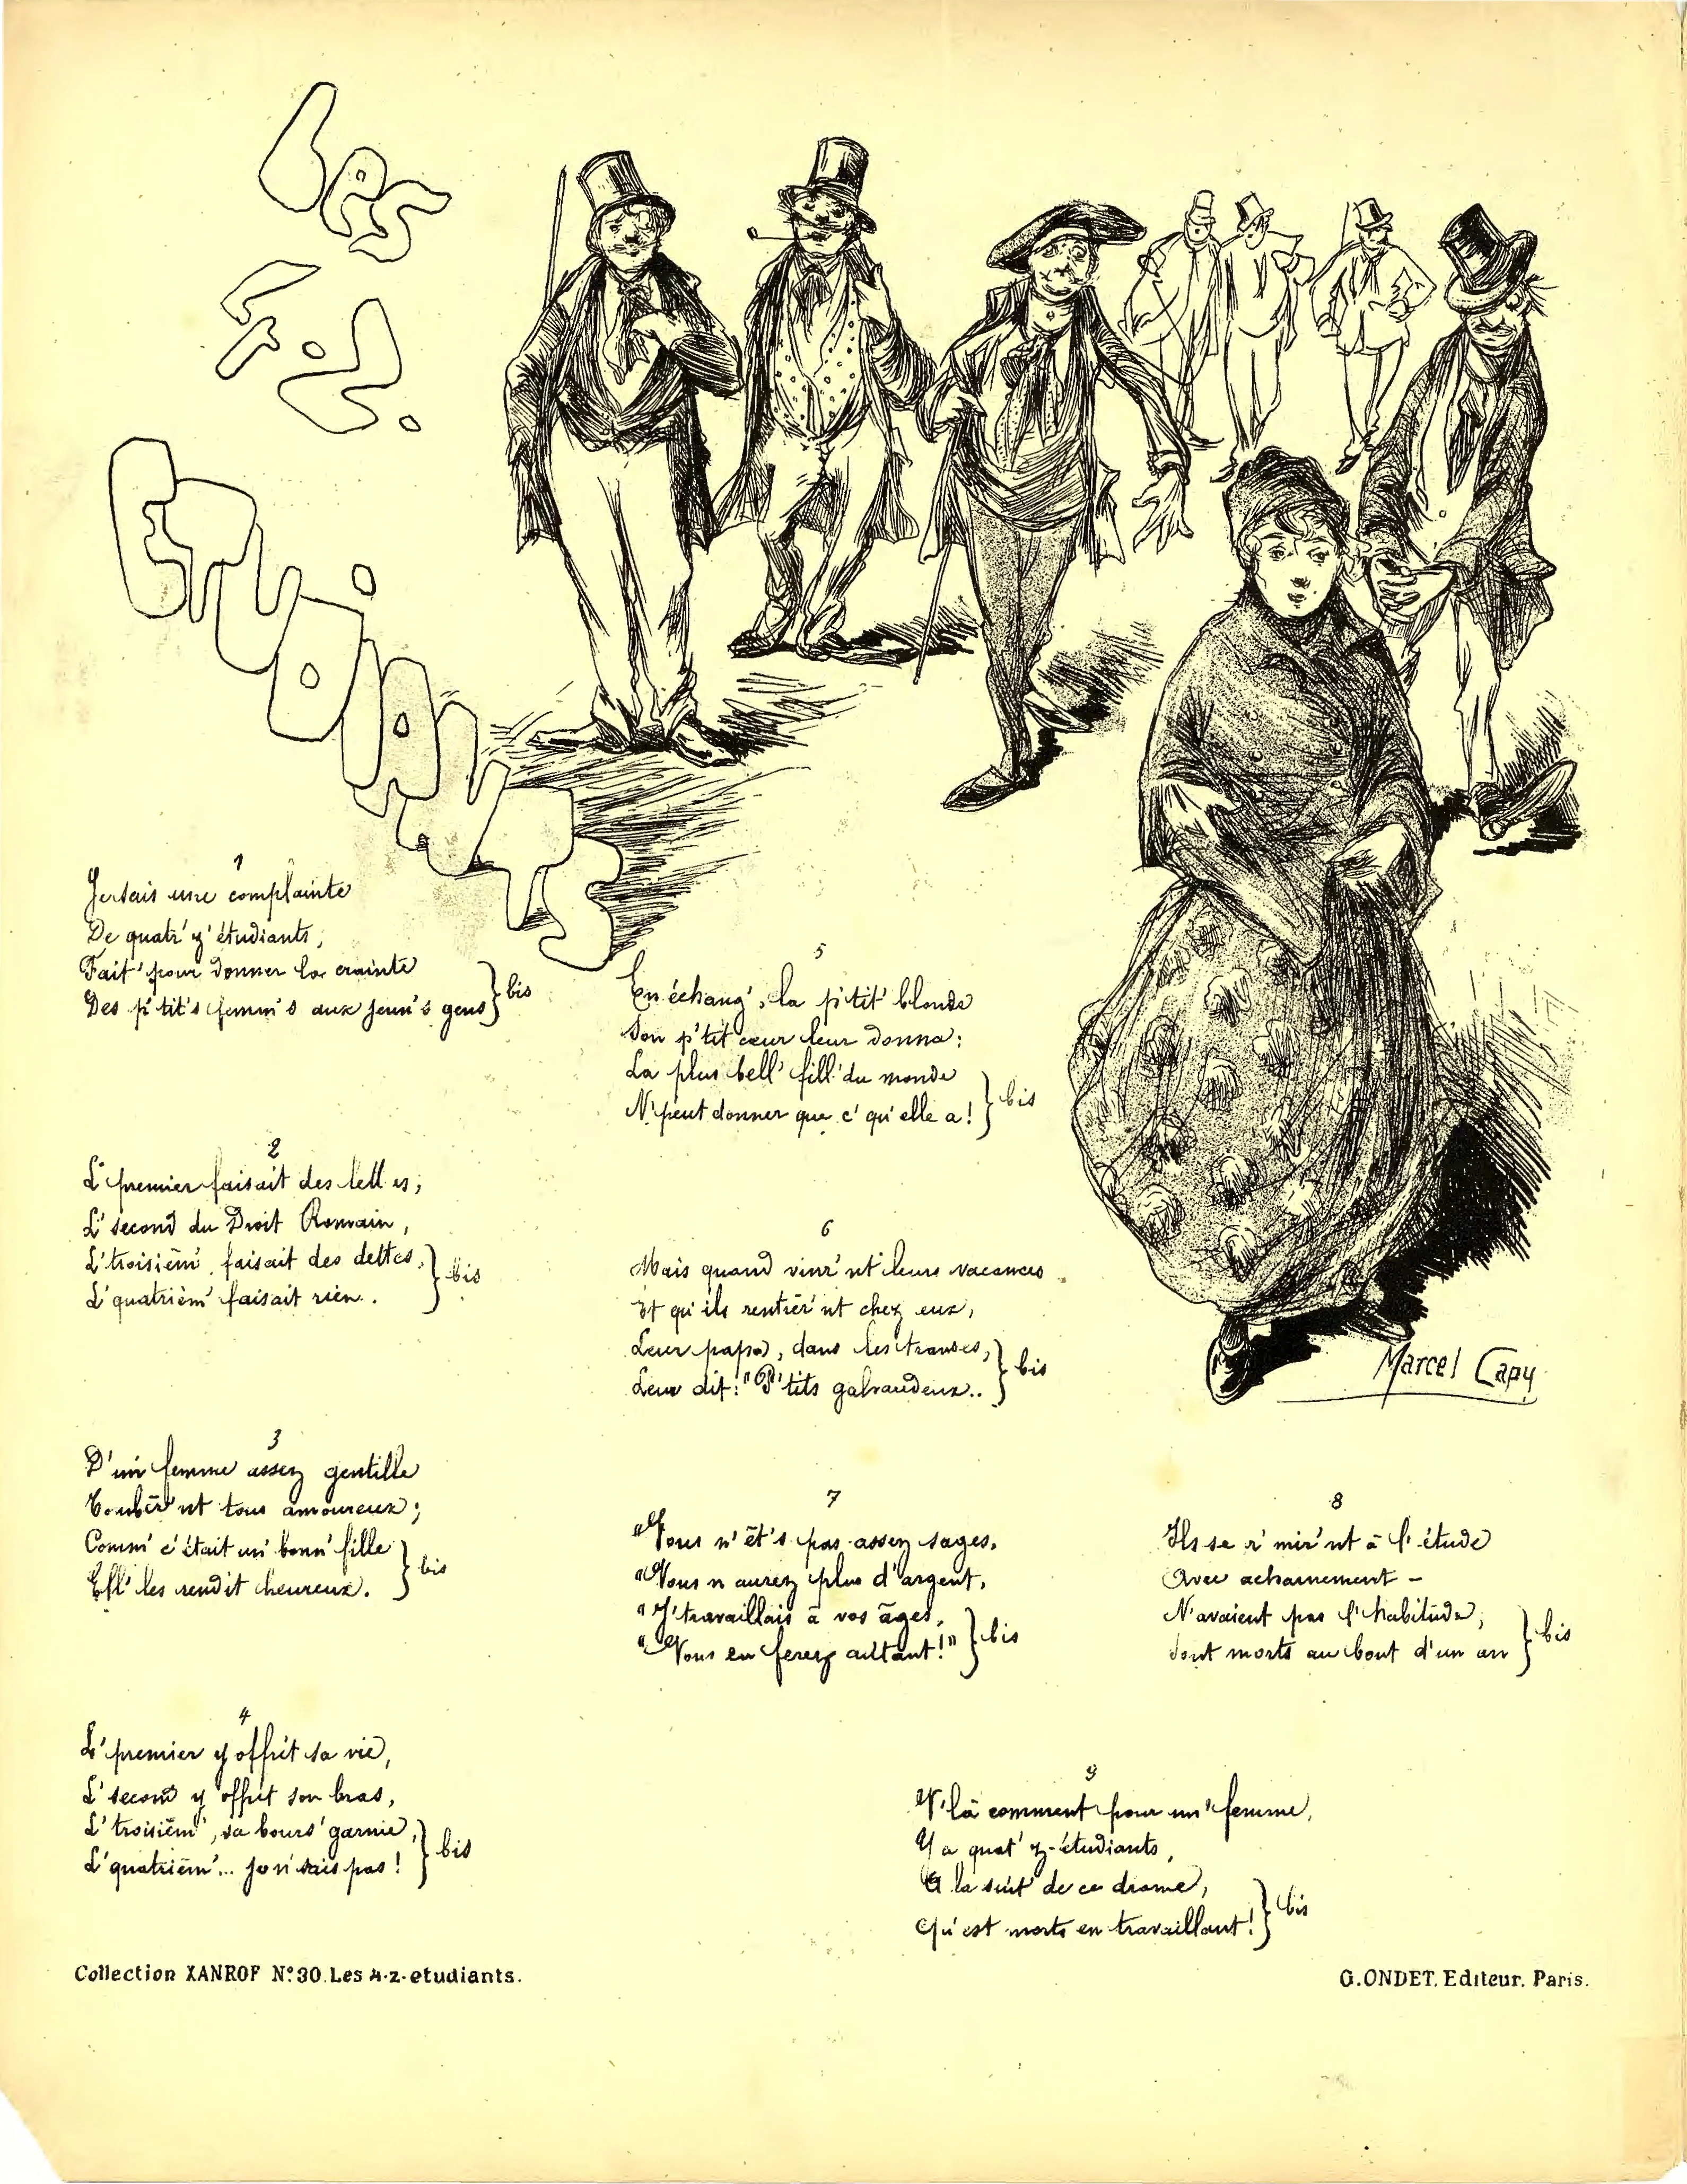 Les
4.z.
Etudiants
1
Je sais une complainte
De quatr' z' étudiants,
Fait' pour donner la crainte
Des p'tit's femm's aux jeun's gens } bis
2
L' premier faisait des lettres;
L' second du Droit Romain,
L' troisièm' faisait des dettes,
L' quatrièm' faisait rien.. } bis
3
D'un' femme assez gentille
Tombèr'nt tous amoureux;
Comm' c'était un' bonn' fille
Ell' les rendit heureux. } bis
4
L' premier y offrit sa vie,
L' second y offrit son bras,
L' troisièm', sa bours' garnie,
L' quatrièm'... je n' sais pas! } bis
5
En échang', la p'tit' blonde
Son p'tit cœur leur donna:
La plus bell' fill' du monde
N' peut donner que c' qu'elle a! } bis
6
Mais quand vinr'nt leurs vacances
Et qu'ils rentrèr'nt chez eux,
Leur papa, dans les transes,
Leur dit: "P'tits galvaudeux.. } bis
7
"Vous n'êt's pas assez sages,
"Vous n'aurez plus d'argent,
"J' travaillais à vos âges,
"Vous en ferez autant!" } bis
8
Ils se r'mir'nt à l'étude
Avec acharnement -
N'avaient pas l'habitude,
Sont morts au bout d'un an } bis
9
V'là comment pour un' femme,
Y a quat' z-étudiants,
A la suit' de ce drame,
Qu'est morts en travaillant! } bis
Marcel Capy
Collection XANROF N° 30. Les 4-z-etudiants.
G. ONDET. Editeur. Paris.